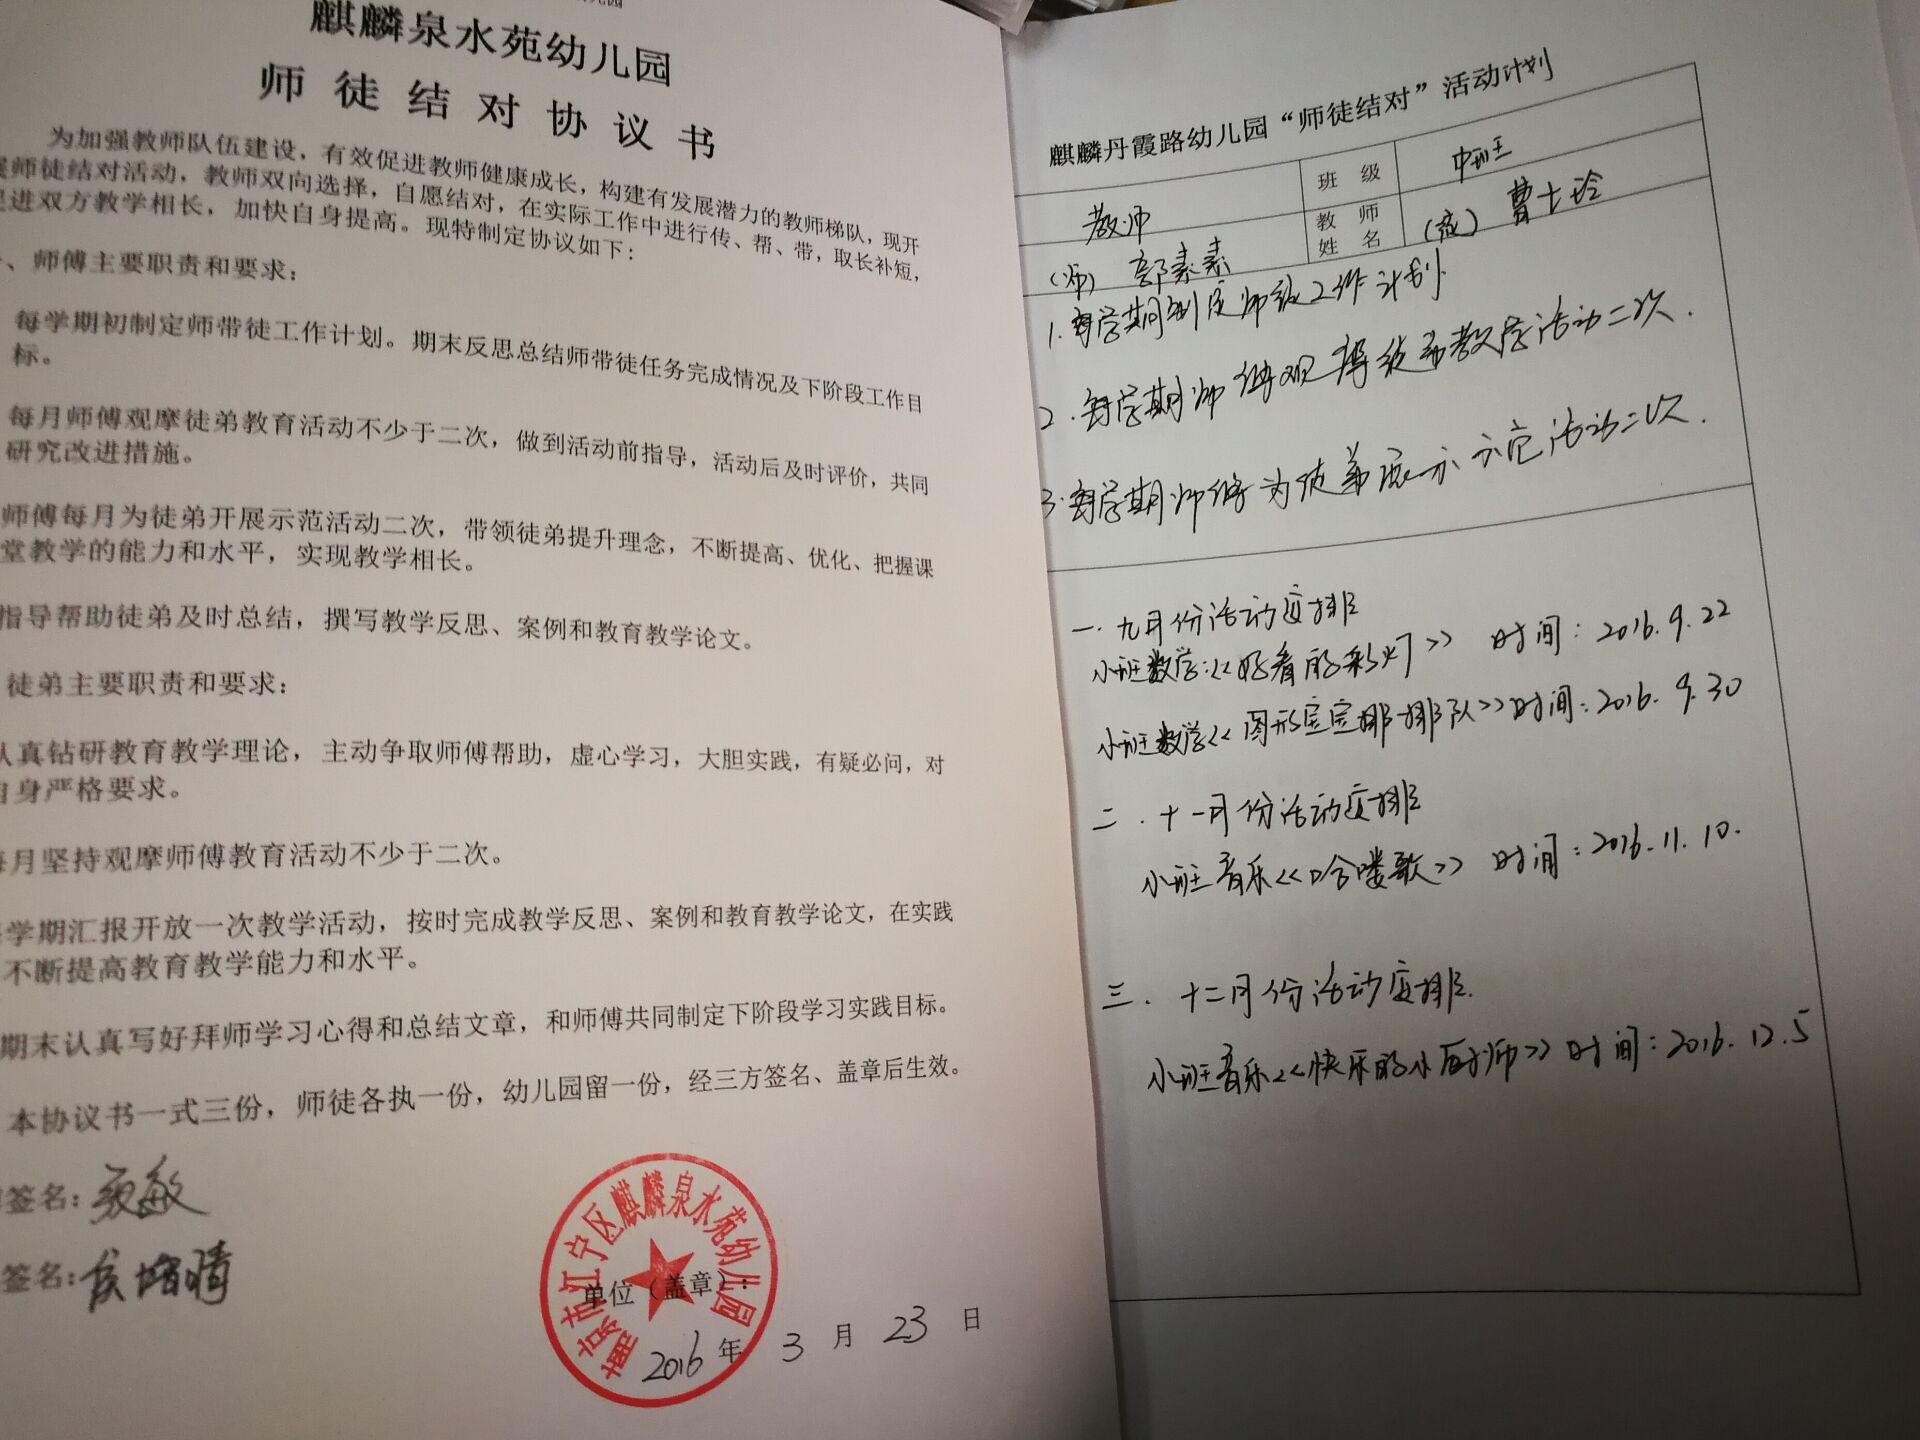 麒麟泉水苑幼儿园
师徒结对协议书
为加强教师队伍建设，有效促进教师健康成长，构建有发展潜力的教师梯队，现开
展师徒结对活动，教师双向选择，自愿结对，在实际工作中进行传、帮、带，取长补短，
促进双方教学相长，加快自身提高。现特制定协议如下：
、师傅主要职责和要求：
每学期初制定师带徒工作计划。期末反思总结师带徒任务完成情况及下阶段工作目
标。
每月师傅观摩徒弟教育活动不少于二次，做到活动前指导，活动后及时评价，共同
研究改进措施。
师傅每月为徒弟开展示范活动二次，带领徒弟提升理念，不断提高、优化、把握课
堂教学的能力和水平，实现教学相长。
指导帮助徒弟及时总结，撰写教学反思、案例和教育教学论文。
徒弟主要职责和要求：
认真钻研教育教学理论，主动争取师傅帮助，虚心学习，大胆实践，有疑必问，对
自身严格要求。
每月坚持观摩师傅教育活动不少于二次。
学期汇报开放一次教学活动，按时完成教学反思、案例和教育教学论文，在实践
不断提高教育教学能力和水平。
期末认真写好拜师学习心得和总结文章，和师傅共同制定下阶段学习实践目标。
本协议书一式三份，师徒各执一份，幼儿园留一份，经三方签名、盖章后生效。
签名：敏
签名：侯 晴
南京市江宁区麒麟泉水苑幼儿园
单位（盖章）：
2016年3月23日
麒麟丹霞路幼儿园“师徒结对”活动计划
教师 班级 中班
（师）郭素素 教师姓名 （徒）曹士玲
1.每学期制定师徒工作计划
2.每学期师傅观摩徒弟教学活动二次.
3.每学期师傅为徒弟展示示范活动二次.
一.九月份活动安排
小班数学:《好看的彩灯》 时间：2016.9.22
小班数学《图形宝宝排排队》时间：2016.9.30
二.十一月份活动安排
小班音乐《哈喽歌》 时间：2016.11.10.
三.十二月份活动安排.
小班音乐《快乐的小厨师》时间：2016.12.5